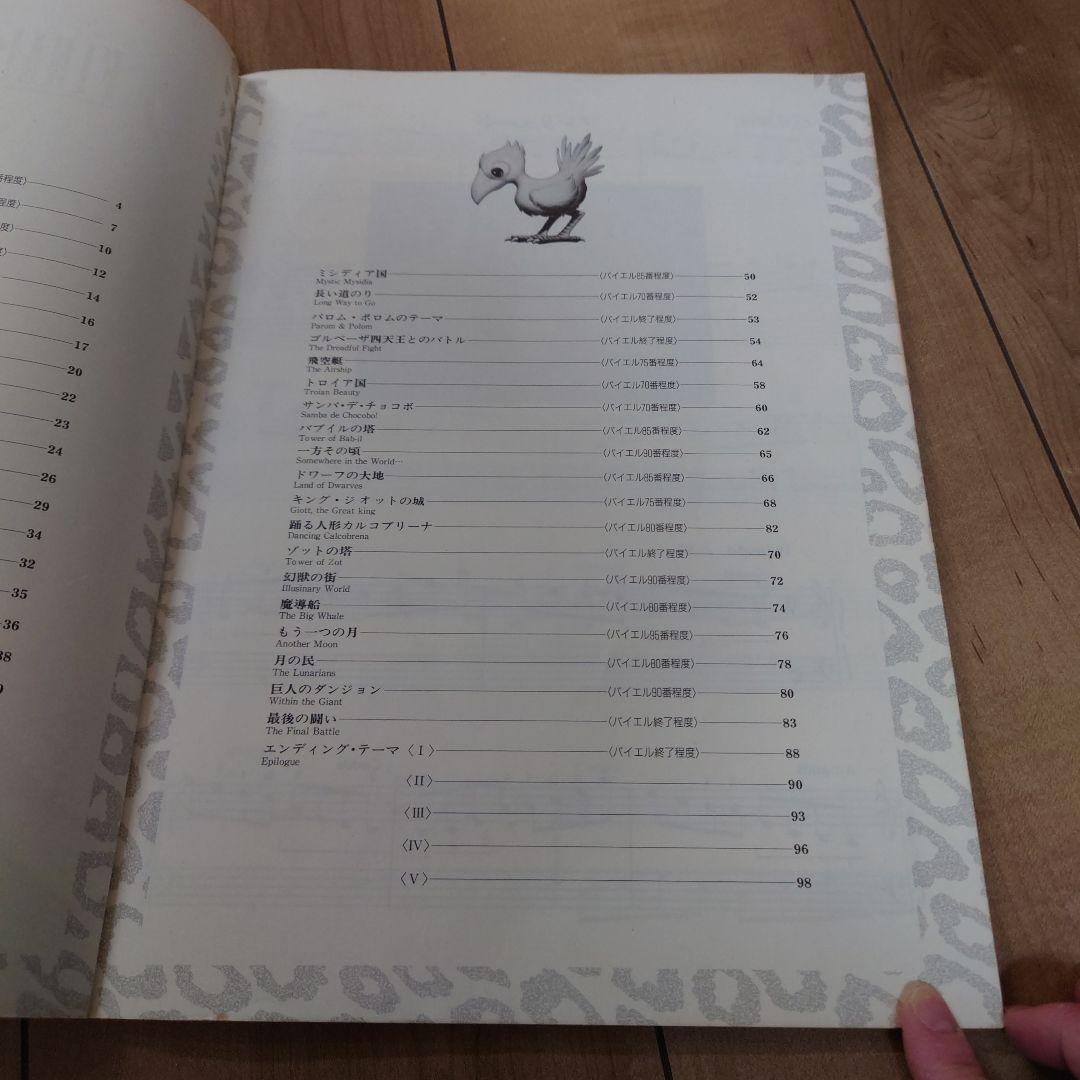 番程度〉 4
程度〉 7
度〉 10
〉 12
14
16
17
20
22
23
24
26
29
34
32
35
36
38
9
ミシディア国 〈バイエル85番程度〉 50
Mystic Mysidia
長い道のり 〈バイエル70番程度〉 52
Long Way to Go
パロム・ポロムのテーマ 〈バイエル終了程度〉 53
Parom & Polom
ゴルベーザ四天王とのバトル 〈バイエル終了程度〉 54
The Dreadful Fight
飛空艇 〈バイエル75番程度〉 64
The Airship
トロイア国 〈バイエル70番程度〉 58
Troian Beauty
サンバ・デ・チョコボ 〈バイエル70番程度〉 60
Samba de Chocobo!
バブイルの塔 〈バイエル85番程度〉 62
Tower of Bab-il
一方その頃 〈バイエル90番程度〉 65
Somewhere in the World…
ドワーフの大地 〈バイエル85番程度〉 66
Land of Dwarves
キング・ジオットの城 〈バイエル75番程度〉 68
Giott, the Great king
踊る人形カルコブリーナ 〈バイエル80番程度〉 82
Dancing Calcobrena
ゾットの塔 〈バイエル終了程度〉 70
Tower of Zot
幻獣の街 〈バイエル90番程度〉 72
Illusinary World
魔導船 〈バイエル80番程度〉 74
The Big Whale
もう一つの月 〈バイエル95番程度〉 76
Another Moon
月の民 〈バイエル80番程度〉 78
The Lunarians
巨人のダンジョン 〈バイエル90番程度〉 80
Within the Giant
最後の闘い 〈バイエル終了程度〉 83
The Final Battle
エンディング・テーマ〈I〉 〈バイエル終了程度〉 88
Epilogue
〈II〉 90
〈III〉 93
〈IV〉 96
〈V〉 98